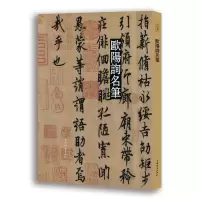 歐陽詢名筆
指薪脩祜永綏吉劭矩步
引領俯仰廊廟束帶矜
莊徘徊瞻眺孤陋寡聞
愚蒙等誚謂語助者焉
哉乎也
歐陽詢名筆